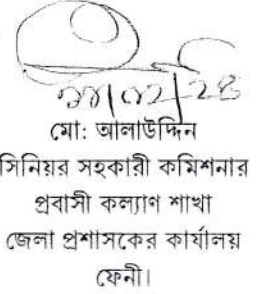 মো: আলাউদ্দিন
সিনিয়র সহকারী কমিশনার
প্রবাসী কল্যাণ শাখা
জেলা প্রশাসকের কার্যালয়
ফেনী।